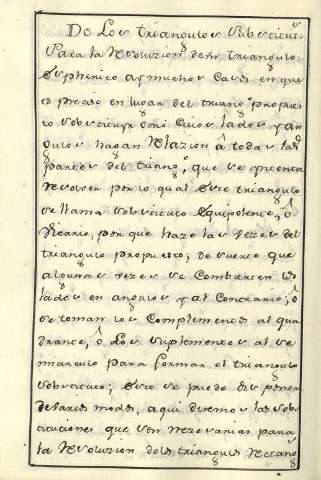 De Los triangulos Substitut.s
Para la resoluzion de un triangulo
Espherico ay muchos Casos en que
es preciso en lugar del triang.o propues
to substituyr otro Cuios lados y an
gulos hagan Relazion à todas las
partes del triang.o, que se yntenta
resolver por lo qual este triangulo
se llama substituto Equipolente, ô
Vicario, por que haze las vezes del
triangulo propuesto; de suerte que
algunas vezes se Combierten los
lados en angulos y al Contrario; ô
se toman los Complementos al qua
drante, ô Los suplementos al se
micirculo para formar el triangulo
substituto; esto se puede disponer
de varios modos, aqui diremos las subs
tituciones que son nezesarias para
la resoluzion de los triangulos rectang